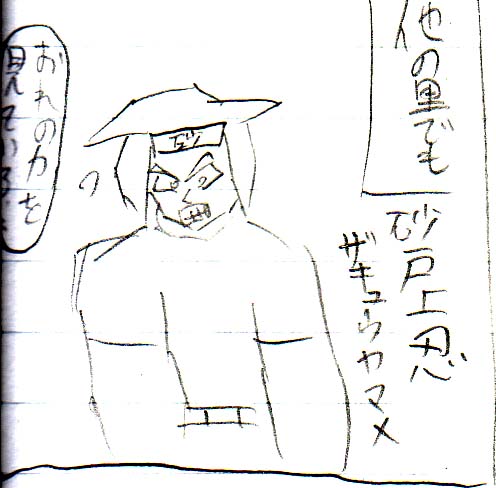 他の里でも
砂戸上忍
ザキュウヤマメ
砂
おれの力を
見ている…